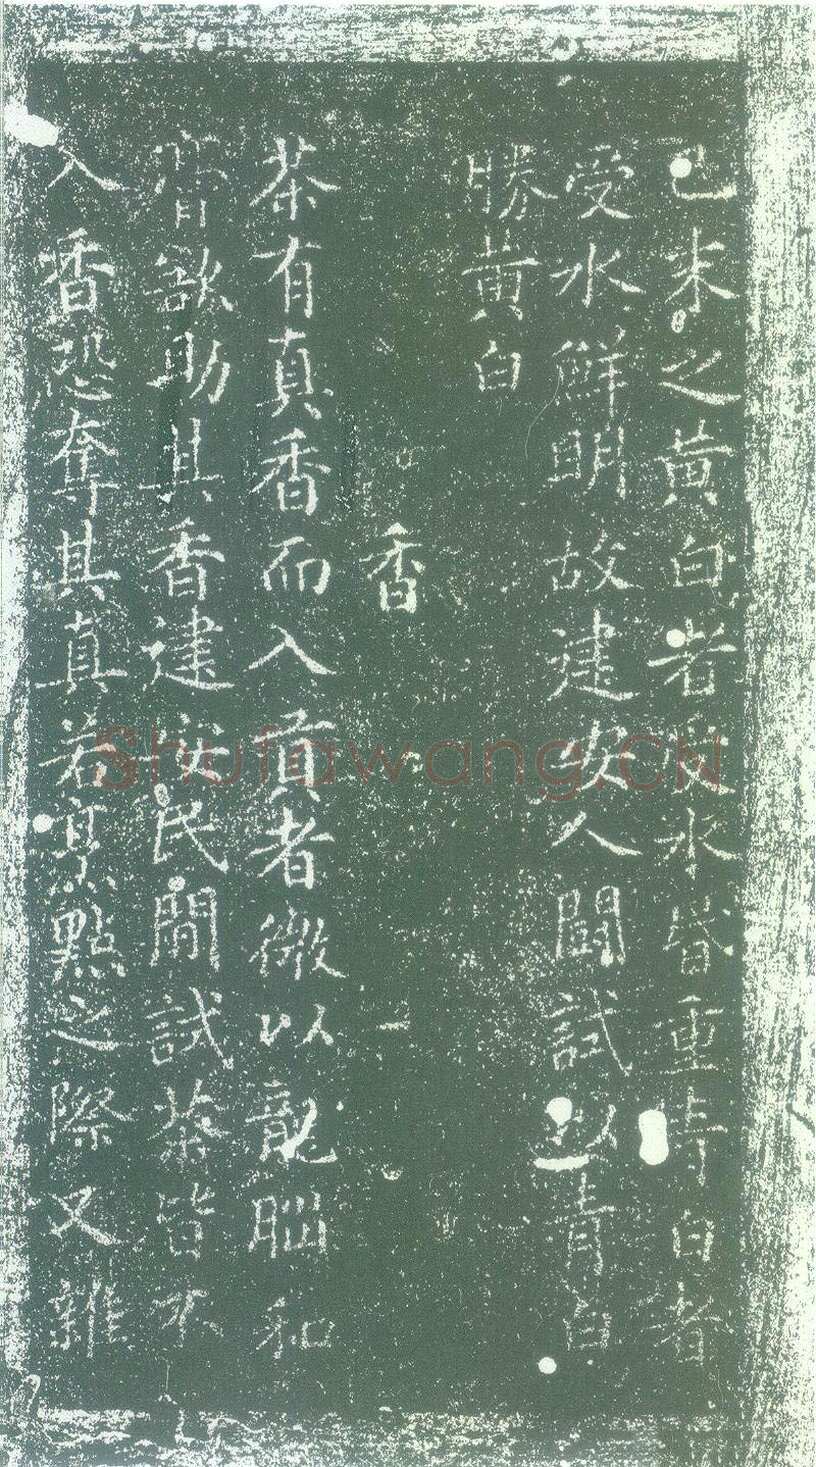 已末之黄白者受水昏重青白者
受水鮮明故建安人闘試以青白
勝黄白
香
茶有真香而入貢者微以龍腦和
膏欲助其香建安民間試茶皆不
入香恐奪其真若烹點之際又雜
Shufawang.CN